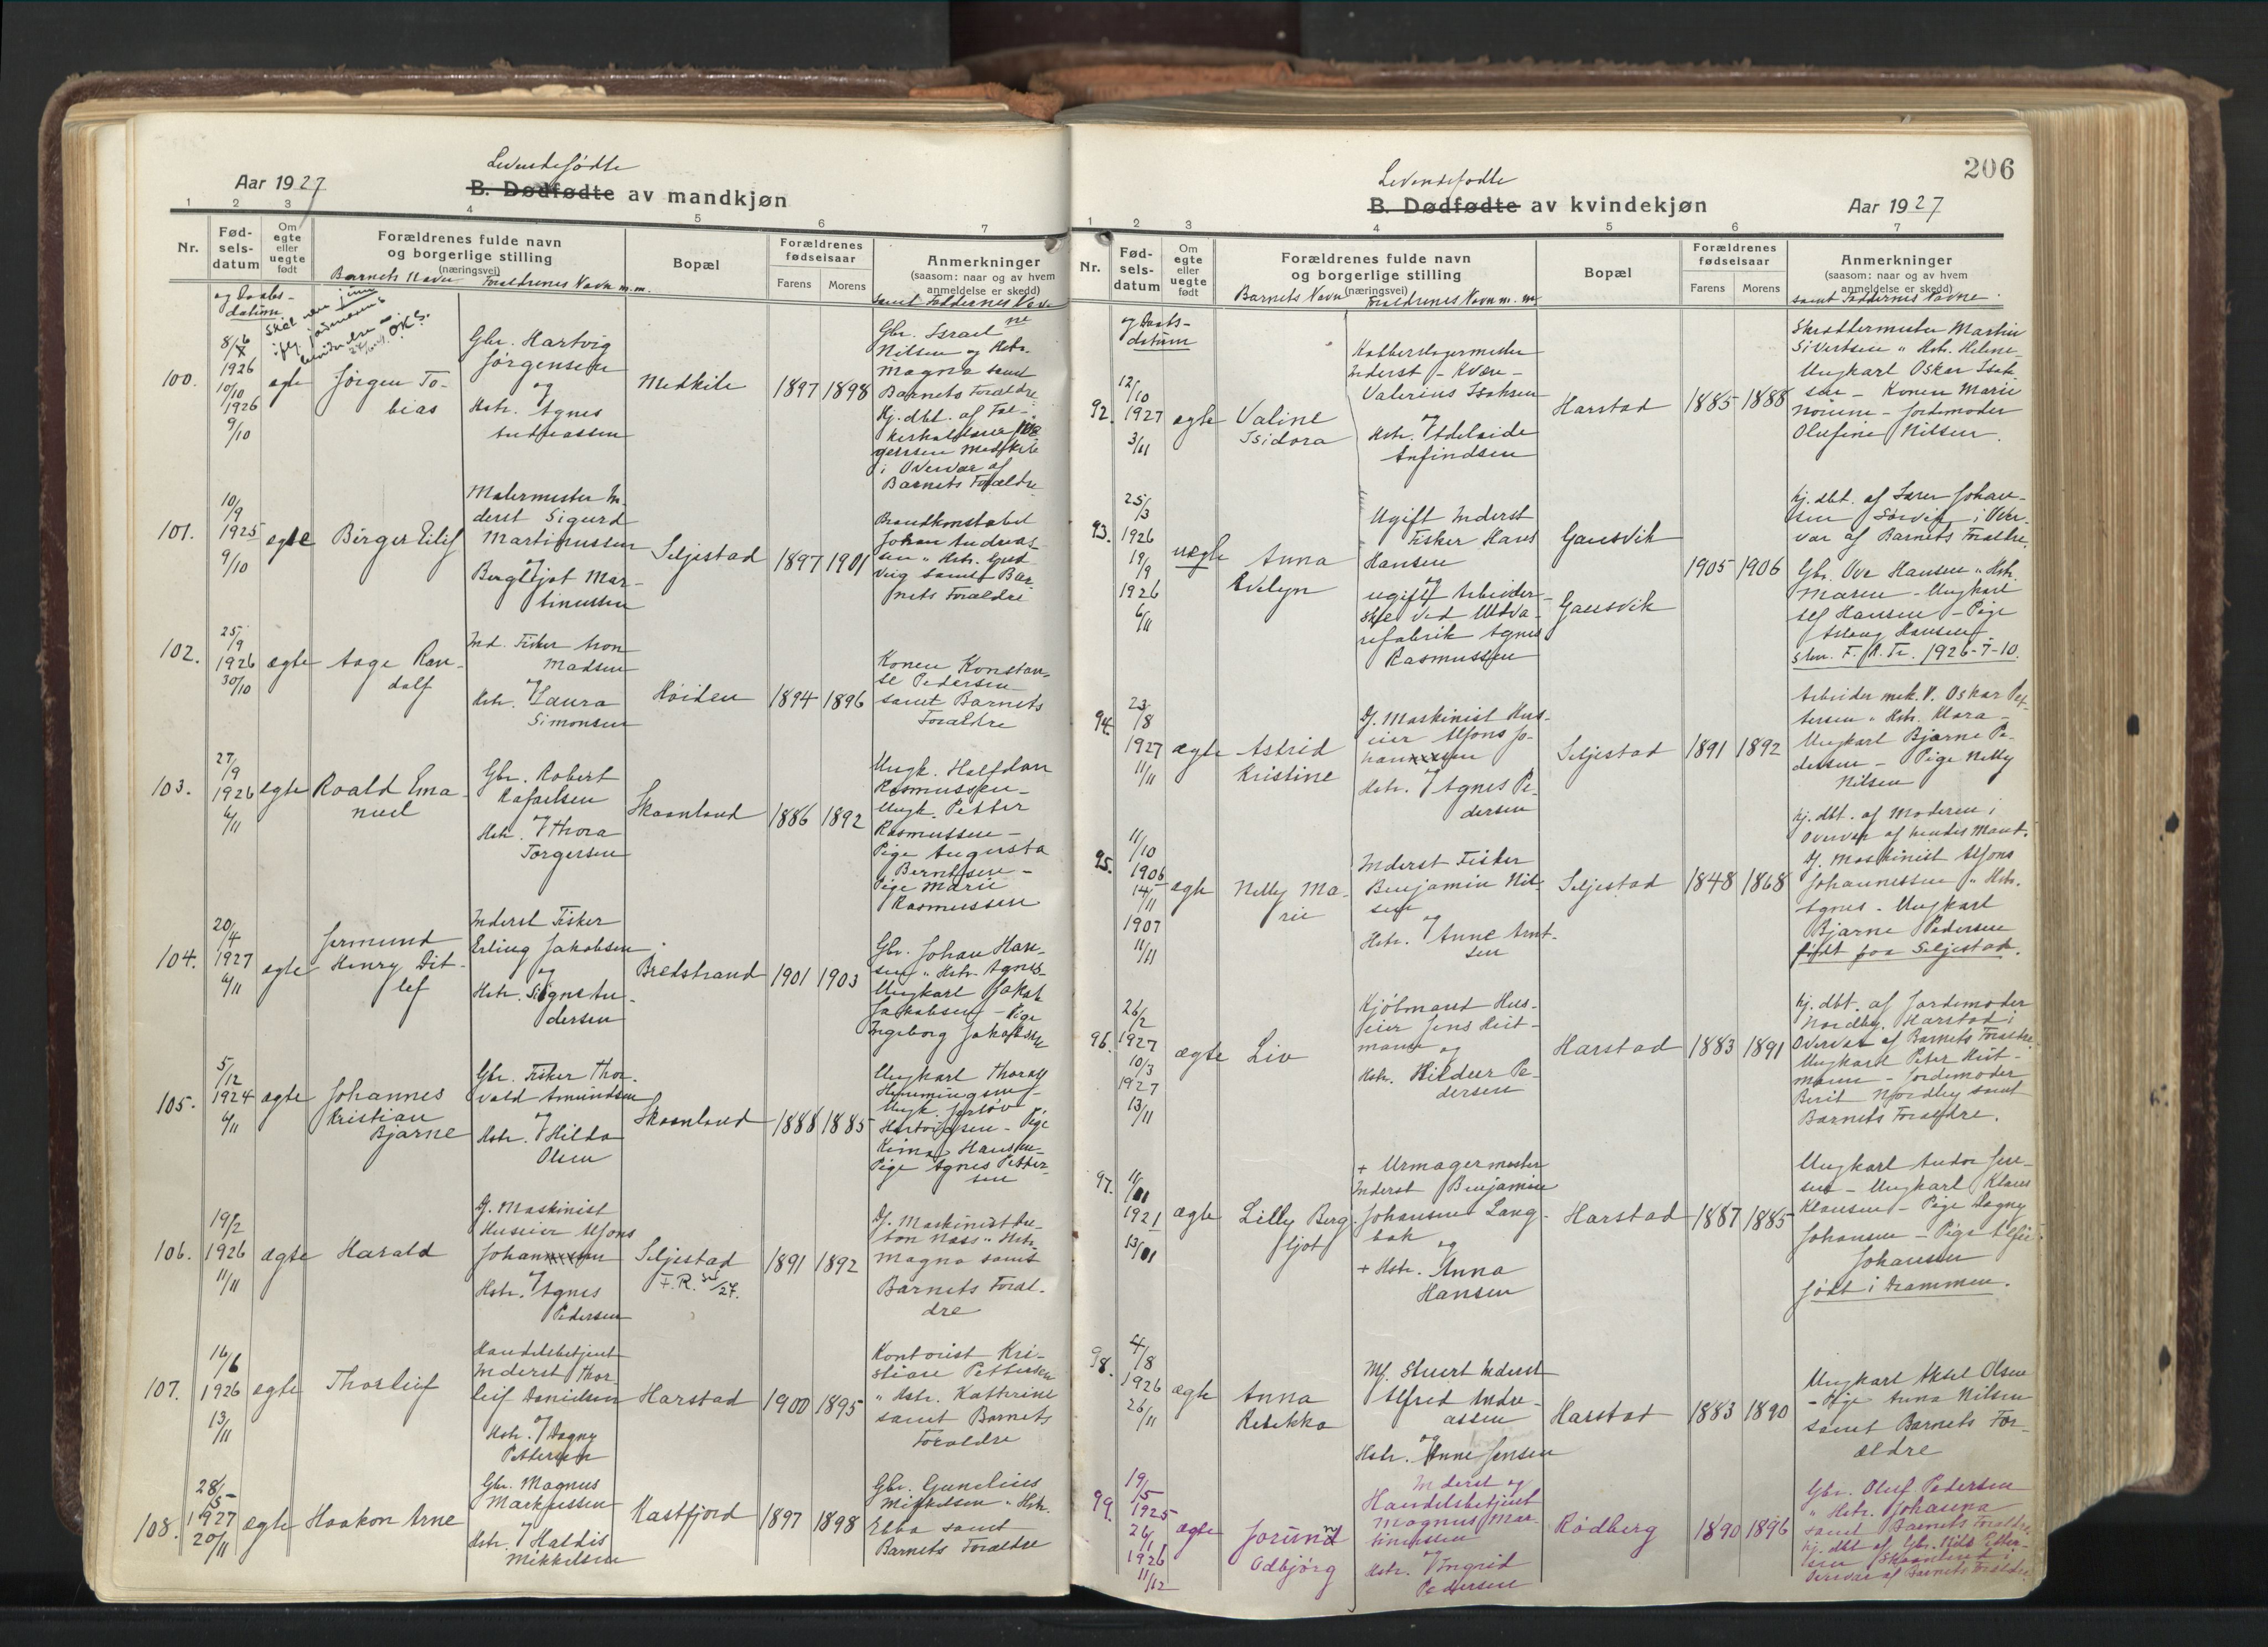 Levendefødte
Aar 1927
B. Dødfødte av mandkjøn
1 2 3 4 5 6 7
Nr.
Fød-
sels-
datum
og Daabs-
datum
Om
egte
eller
uegte
født
Forældrenes fulde navn
og borgerlige stilling
(næringsvei)
Barnets Navn Forældrenes Navn m.m.
Bopæl
Forældrenes
fødselsaar
Farens Morens
Anmerkninger
(saasom: naar og av hvem
anmeldelse er skedd)
samt Faddernes Navne
100.
8/8
1926
10/10
1926
9/10
ægte
Jørgen To-
bias
Gbr. Hartvig
Jørgensen
og
Hstr. Agnes
Andreassen
Medkile
1897 1898
Gbr. Israel
Nilsen og Hstr.
Magna samt
Barnets Forældre
Hj. dbt. af
Medkile
i Overvær af
Barnets Forældre
101.
10/9
1925
9/10
egte
Birger Eilif
Malermester In-
derst Sigurd
Martinussen
og
Bergljot Mar-
tinussen
Seljestad
1897 1901
Brandkonstabel
Johan Andreas-
sen " Hstr. Gud-
veig samt Bar-
nets Forældre
102.
25/9
1926
30/10
ægte
Aage Ran-
dolf
Ind. Fisker Aron
Madsen
og
Hstr. Laura
Simonsen
Høiden
1894 1896
Konen Konstan-
se Pedersen
samt Barnets
Forældre
103.
27/9
1926
6/11
egte
Roald Ema-
nuel
Gbr. Robert
Rafaelsen
og
Hstr. Thora
Torgersen
Skaanland
1886 1892
Ungk. Halfdan
Rasmussen -
Ungk. Petter
Rasmussen -
Pige Augusta
Berntsen -
Pige Marie
Rasmussen
104.
20/4
1927
6/11
egte
Jermund
Henry Dit-
lef
Inderst Fisker
Erling Jakobsen
og
Hstr. Signe An-
dersen
Bredstrand
1901 1903
Gbr. Johan Han-
sen " Hstr. Agnes-
Ungkarl Jakob
Jakobsen - Pige
Ingeborg Jakobsen
105.
5/12
1924
6/11
ægte
Johannes
Kristian
Bjarne
Gbr. Fisker Thor-
vald Amundsen
og
Hstr. Hilda
Olsen
Skaanland
1888 1885
Ungkarl Thoralf
Hemmingsen -
Ungk.
Hartvigsen - Pige
Hansen-
Pige Agnes Petter-
sen
106.
19/2
1926
11/11
ægte
Harald
Df. Maskinist
Huseier Alfons
Johannssen
og
Hstr. Agnes
Pedersen
Seljestad
F.R. /27.
1891 1892
Df. Maskinist An-
ton Nass " Hstr.
Magna samt
Barnets Foræl-
dre
107.
16/6
1926
13/11
egte
Thorleif
Handelsbetjent
Inderst Thor-
leif Danielsen
og
Hstr. Dagny
Pettersen
Harstad
1900 1895
Kontorist Kri-
stian Pettersen
" Hstr. Kathrine
samt Barnets
Forældre
108.
28/5
1927
20/11
egte
Haakon Arne
Gbr. Magnus
Markussen
og
Hstr. Haldis
Mikkelsen
Kastfjord
1897 1898
Gbr. Gunelius
Mikkelsen " Hstr.
Ebba samt
Barnets Forældre
206
Levendefødte
B. Dødfødte av kvindekjøn
Aar 1927
1 2 3 4 5 6 7
Nr.
Fød-
sels-
datum
og Daabs-
datum
Om
egte
eller
uegte
født
Forældrenes fulde navn
og borgerlige stilling
(næringsvei)
Barnets Navn Forældrenes Navn m.m.
Bopæl
Forældrenes
fødselsaar
Farens Morens
Anmerkninger
(saasom: naar og av hvem
anmeldelse er skedd)
samt Faddernes Navne.
92.
12/10
1927
3/11
egte
Valine
Isidora
Kobberslagermester
Inderst - Kvæn -
Valerius Isaksen
og
Hstr. Adelaide
Anfindsen
Harstad
1885 1888
Skræddermester Martin
Sivertsen " Hstr. Helene-
Ungkarl Oskar Isak-
sen - Konen Marie
Noiime - Jordemoder
Olufine Nilsen.
93.
25/3
1926
19/9
1926
6/11
uegte
Anna
Evelyn
Ugift Inderst
Fisker Hans
Hansen
og
ugift Arbeider-
ske ved Uldva-
refabrik Agnes
Rasmussen
Gausvik
Gausvik
1905 1906
Hj. dbt. af Lærer Johan-
sen Sørvik i Over-
vær af Barnets Forældre.
Gbr. Ove Hansen " Hstr.
Maren - Ungkarl
Hansen - Pige
Aslaug Hansen.
F. R. Tr. 1926-7-10.
94.
23/8
1927
11/11
ægte
Astrid
Kristine
Df. Maskinist Hus-
eier Alfons Jo-
hannssen
og
Hstr. Agnes Pe-
dersen
Seljestad
1891 1892
Arbeider mek. V. Oskar Pet-
tersen " Hstr. Klara -
Ungkarl Bjarne Pe-
dersen - Pige Nelly
Nilsen
95.
11/10
1906
14/11
1907
11/11
ægte
Nelly Ma-
rie
Inderst Fisker
Benjamin Nil-
sen
og
Hstr. Anne Arnt-
sen
Seljestad
1848 1868
Hj. dbt. af Moderen i
Overvær af hendes Mand.
Df. Maskinist Alfons
Johannessen " Hstr.
Agnes - Ungkarl
Bjarne Pedersen
født paa Seljestad.
96.
26/2
1927
10/3
1927
13/11
ægte
Liv
Kjøbmand Hus-
eier Jens Heit-
mann og
Hstr. Hildur Pe-
dersen
Harstad
1883 1891
Hj. dbt. af Jordemoder
Nordby. Harstad i
Overvær af Barnets Forældre.
Ungkarl Peter Heit-
mann - Jordemoder
Berit Nordby samt
Barnets Forældre.
97.
1921
ægte
Lilly Berg-
ljot
+ Urmagermester
Inderst Benjamin
Johansen Lang-
bak
og
+ Hstr. Anna
Hansen
Harstad
1887 1885
Ungkarl Andor Jen-
sen - Ungkarl Klaus
Klausen - Pige Dagny
Johansen - Pige
Johansen
født i Drammen.
98.
4/8
1926
26/11
ægte
Anna
Rebekka
Mf. Stuert Inderst
Alfred Andre-
assen
og
Hstr. Anne Jensen
Harstad
1883 1890
Ungkarl Aksel Olsen
- Pige Anna Nilsen
samt Barnets For-
ældre
99.
19/5
1925
26/1
1926
11/12
ægte
Jorunn
Odbjørg
Inderst og
Handelsbetjent
Magnus Mar-
tinussen
og
Hstr. Ingrid
Pedersen
Rödberg
1890 1896
Gbr. Oluf Pedersen
" Hstr. Johanna
samt Barnets Forældre.
Hj. dbt af Gbr. Nils Petter-
sen Skaanland i
Overvær af Barnets Forældre.